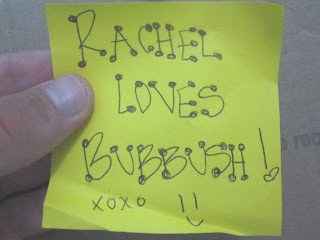 RACHEL
LOVES
BUBBUSH!
XOXO !!